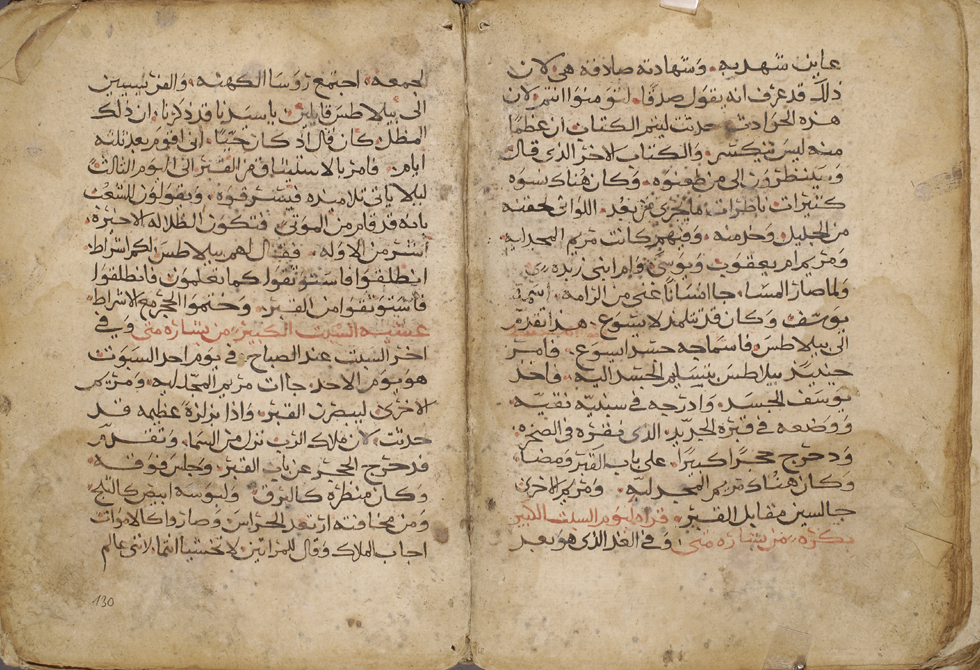 عاين شهد به. وشهادته صادقه هي لان
ذلك قد عرف انه يقول صدقا. لتومنوا انتم لان
هذه الحوادث حدثت ليتم الكتاب ان عظما
منه ليس ينكسر. والكتاب الاخر الذي قال
وسينظرون الى من طعنوه. وكان هناك نسوه
كثيرات ناظرات ما جرى من بعد. اللواتي لحقنه
من الجليل وخدمنه. وفيهم كانت مريم المجدليه
ومريم ام يعقوب ويوسي وام ابني زبدي
ولما صار المسا. جا انسانا غني من الرامه. اسمه
يوسف وكان قد تتلمذ لايسوع. هذا تقدم
الى بيلاطس فاسماحه جسد ايسوع. فامر
حينيذ بيلاطس بتسليم الجسد اليه. فاخذ
يوسف الجسد. وادرجه في سبنيه نقيه
ووضعه في قبره الجديد. الذي نقره في الصخره.
ودحرج حجرا كبيرا. على باب القبر ومضا.
وكان هناك مريم المجدليه. ومريم الاخرى
جالستين مقابل القبر. قراه ليوم السبت الكبير
بكره. من بشاره متى. وفي الغد الذي هو بعد
الجمعه. اجتمع روسا الكهنه. والفريسيين
الى بيلاطس قايلين. يا سيدنا قد ذكرنا. ان ذلك
المظل كان قال اذ كان حيا. اني اقوم بعد ثلثه
ايام. فامر بالاستيثاق من القبر الى اليوم الثالث
ليلا ياتي تلاميذه فيسرقوه. ويقولون للشعب
بانه قد قام من الموتى. فتكون الظلاله الاخيره.
اشر من الاوله. فقال لهم بيلاطس لكم اشراط.
انطلقوا فاستوثقوا كما تعلمون. فانطلقوا
فاستوثقوا من القبر. وختموا الحجر مع الاشراط
عشيه السبت الكبير. من بشاره متى. وفي
اخر السبت عند الصباح. في يوم احد السبوت
هو يوم الاحد. جات مريم المجدليه. ومريم
الاخرى ليبصرن القبر. واذا بزلزله عظيمه قد
حدثت. لان ملاك الرب نزل من السما. وتقدم
فدحرج الحجر عن باب القبر. وجلس فوقه.
وكان منظره كالبرق. ولبوسه ابيض كالثلج
ومن مخافته ارتعد الحراس. وصاروا كالاموات
اجاب الملاك وقال للمراتين لا تخشيا انتما. لانني عالم
130